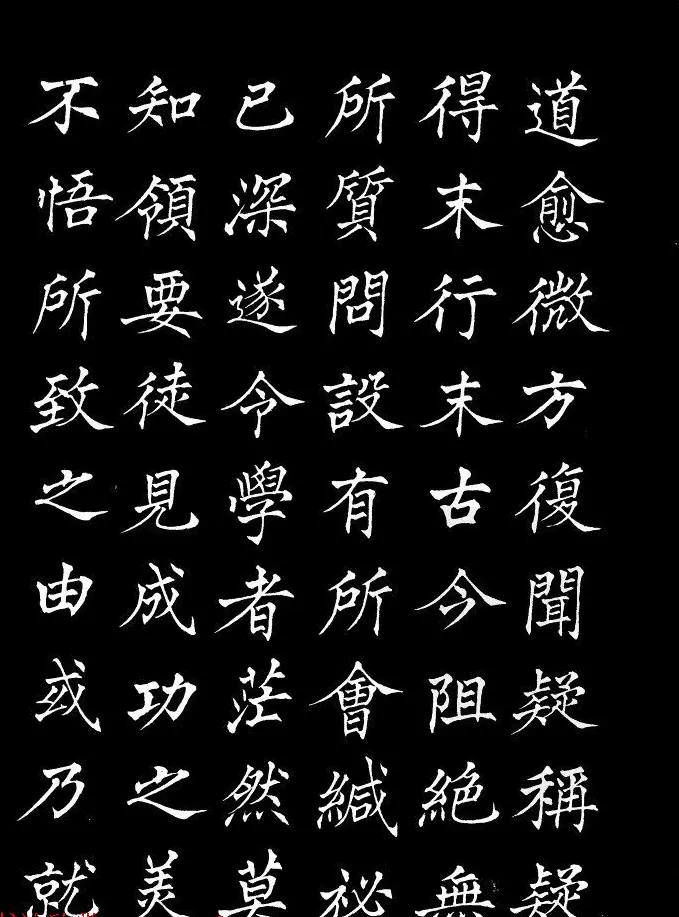 道愈微方復聞疑稱疑
得末行末古今阻絕無
所質問設有所會緘祕
已深遂令學者茫然莫
知領要徒見成功之美
不悟所致之由或乃就